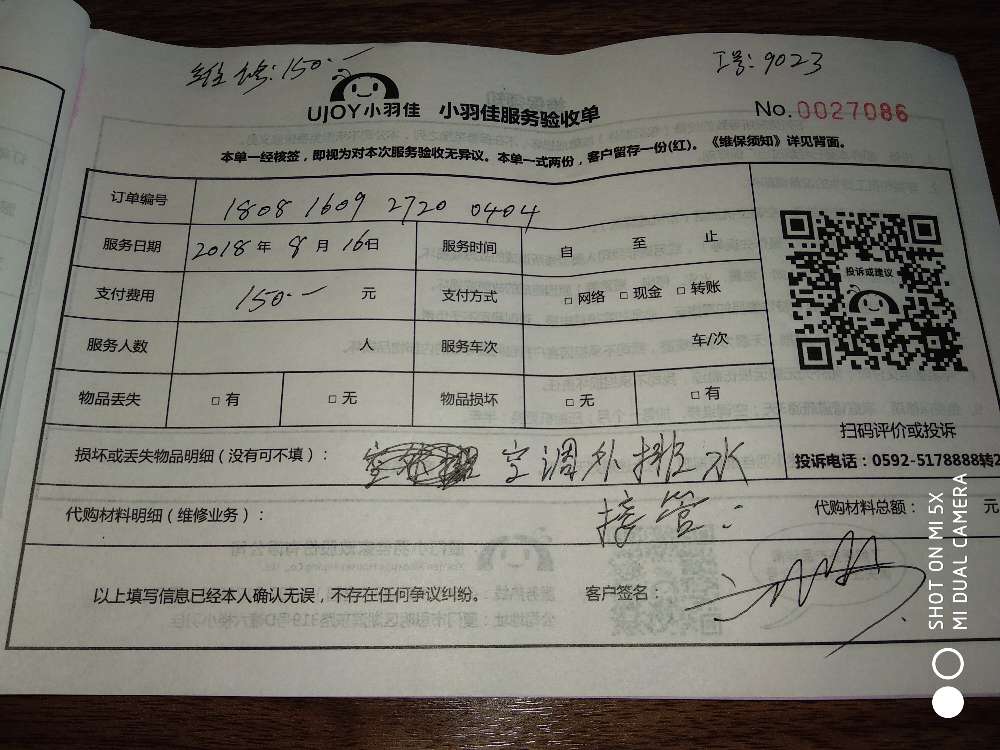 维修:150.— 工号:9023
UJOY小羽佳 小羽佳服务验收单 No.0027086
本单一经核签，即视为对本次服务验收无异议。本单一式两份，客户留存一份(红)。《维保须知》详见背面。
订单编号 1808 1609 2720 0404
服务日期 2018年 8月 16日 服务时间 自 至 止
投诉或建议
支付费用 150.— 元 支付方式 □网络 □现金 □转账
服务人数 人 服务车次 车/次
物品丢失 □有 □无 物品损坏 □无 □有
扫码评价或投诉
损坏或丢失物品明细（没有可不填）： 空调外排水
投诉电话：0592-5178888转2
接管：
代购材料明细（维修业务）： 代购材料总额： 元
以上填写信息已经本人确认无误，不存在任何争议纠纷。 客户签名：
SHOT ON MI 5X
MI DUAL CAMERA